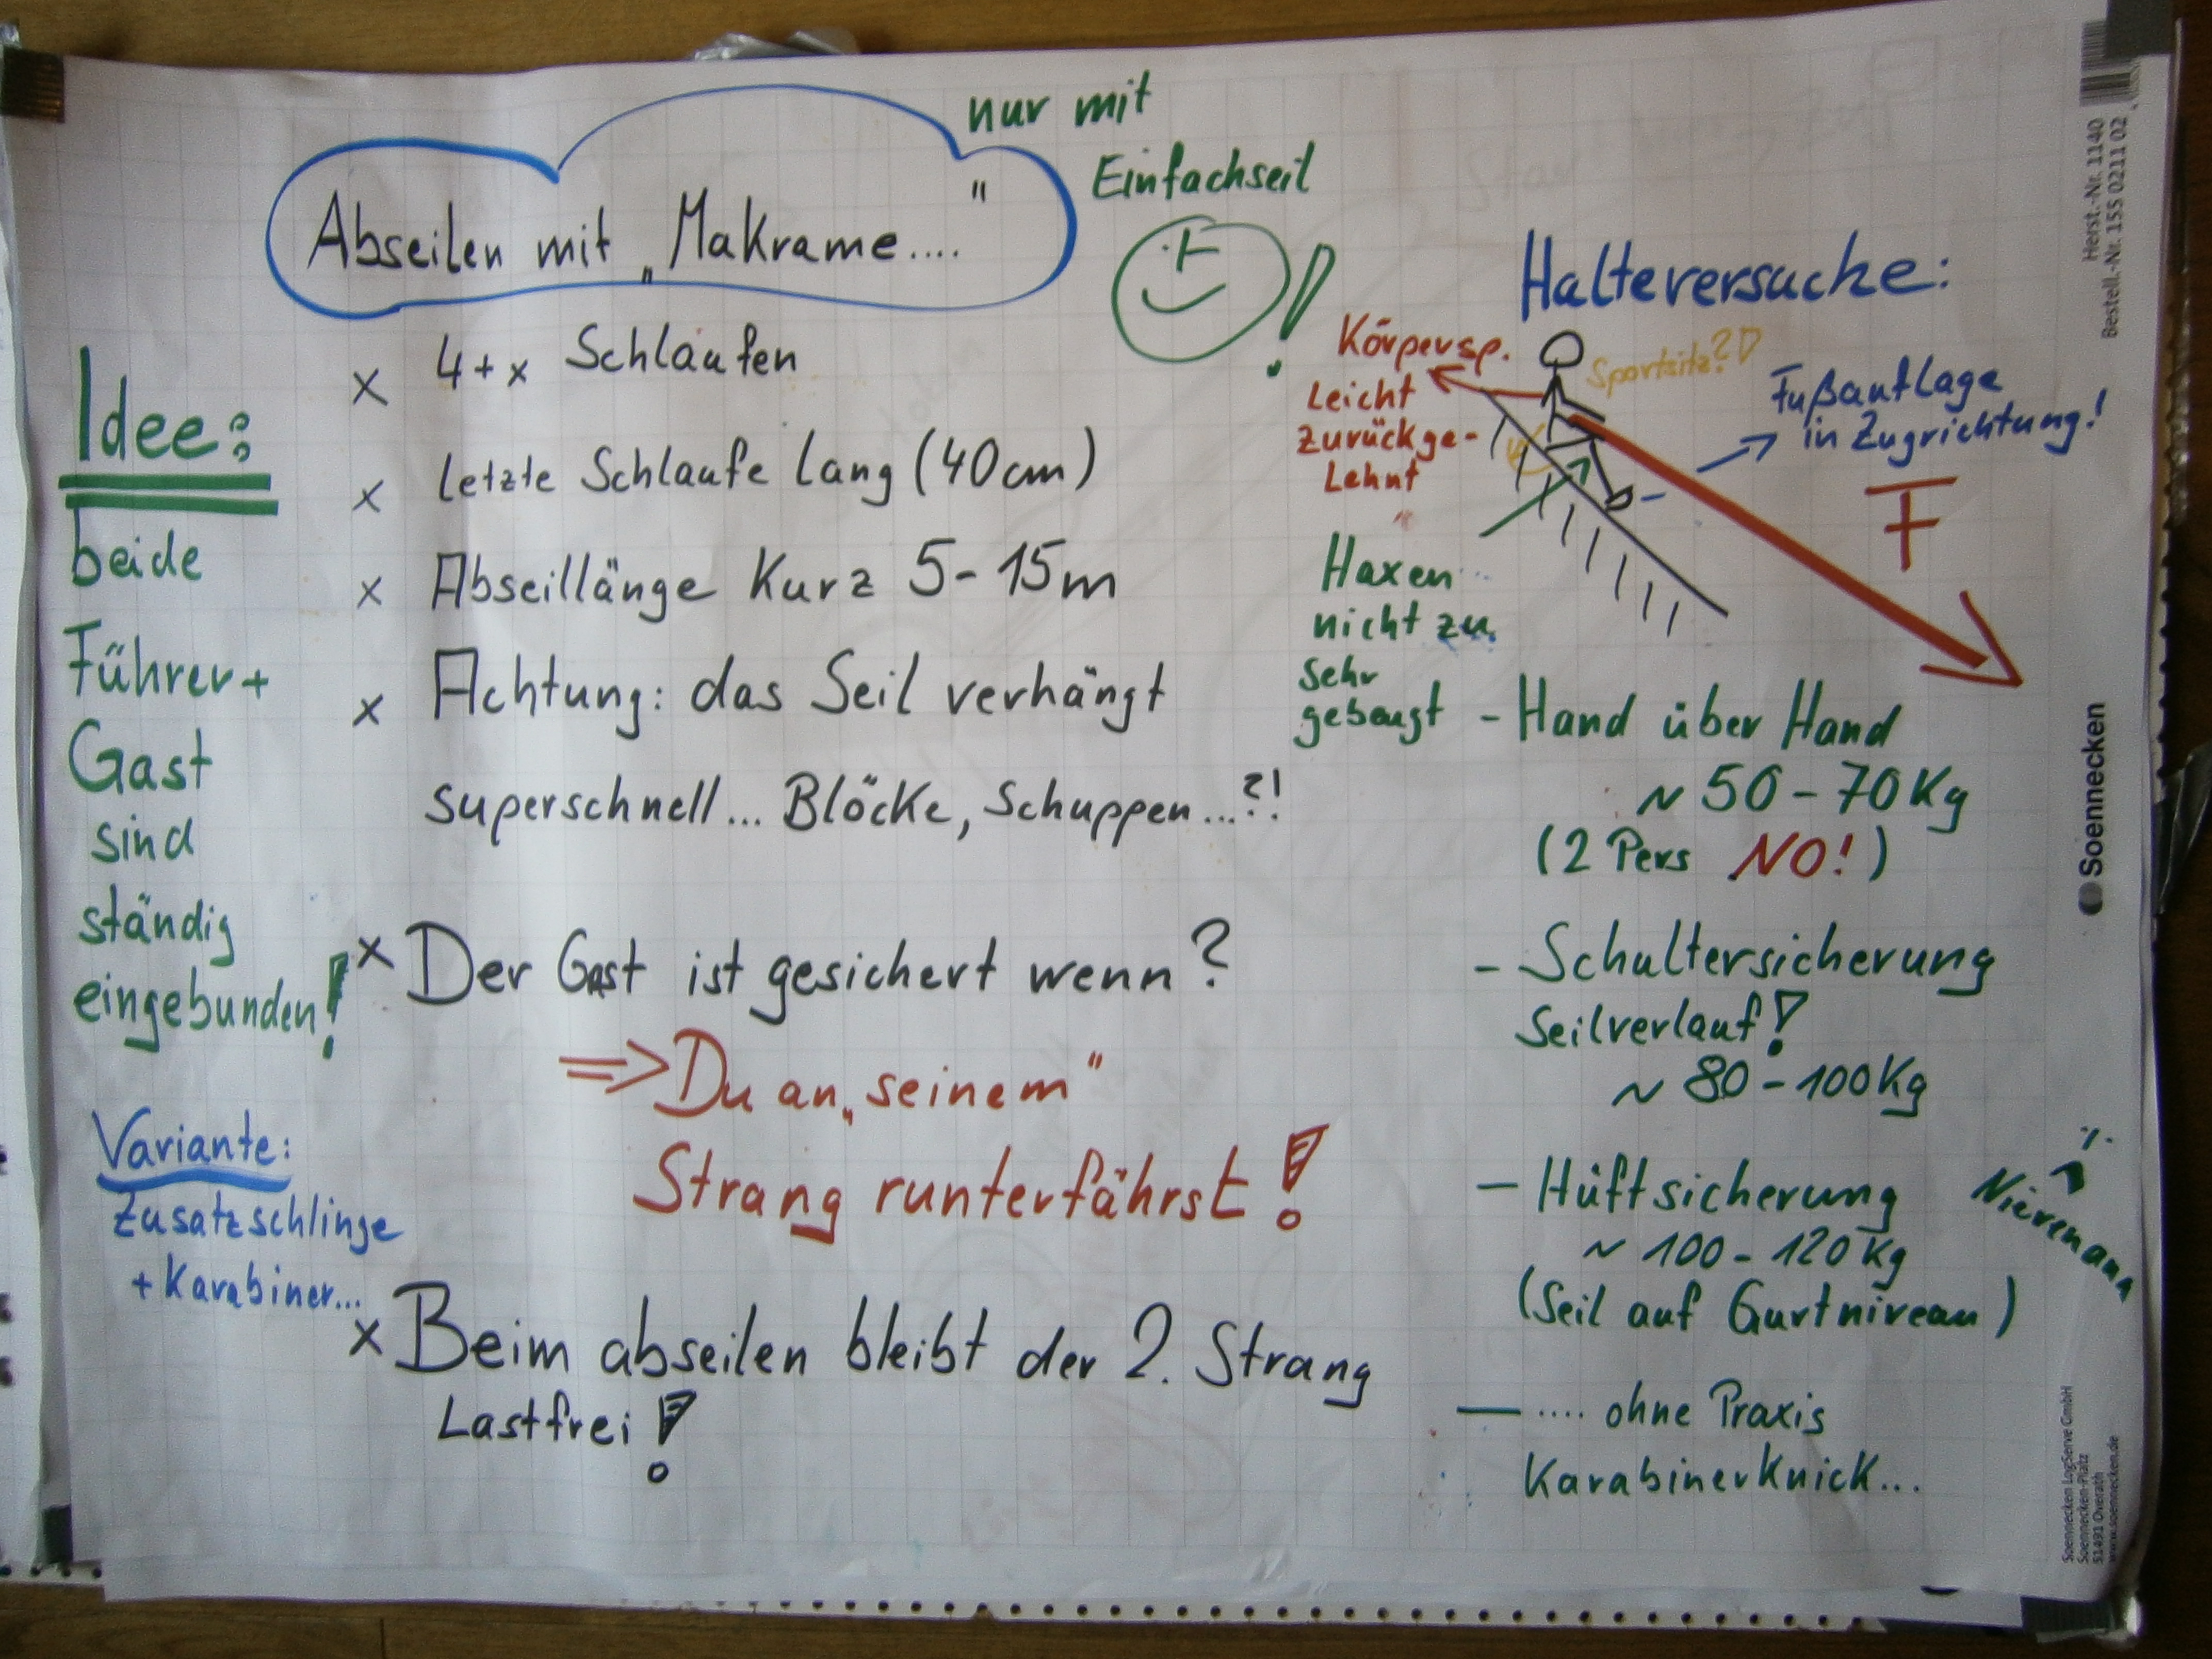 nur mit
Einfachseil
Abseilen mit „Makrame...."
Idee:
beide
Führer+
Gast
sind
ständig
eingebunden!
Variante:
Zusatzschlinge
+ Karabiner...
x 4+x Schlaufen
x letzte Schlaufe lang (40cm)
x Abseillänge Kurz 5-15m
x Achtung: das Seil verhängt
superschnell... Blöcke, Schuppen...?!
x Der Gast ist gesichert wenn?
=> Du an „seinem"
Strang runterfährst!
x Beim abseilen bleibt der 2. Strang
Lastfrei!
Halteversuche:
Körpersp.
Leicht
zurückge-
Lehnt
Sportsitz?!
Fußauflage
in Zugrichtung!
F
Haxen
nicht zu
sehr
gebeugt
- Hand über Hand
~ 50-70Kg
(2 Pers NO!)
- Schultersicherung
Seilverlauf!
~ 80-100Kg
- Hüftsicherung
~ 100-120Kg
(Seil auf Gurtniveau)
- .... ohne Praxis
Karabinerknick...
Herst.-Nr. 1140
Bestell.-Nr. 155 0211 02
Soennecken
Soennecken LogServe GmbH
Soennecken-Platz
51491 Overath
www.soennecken.de